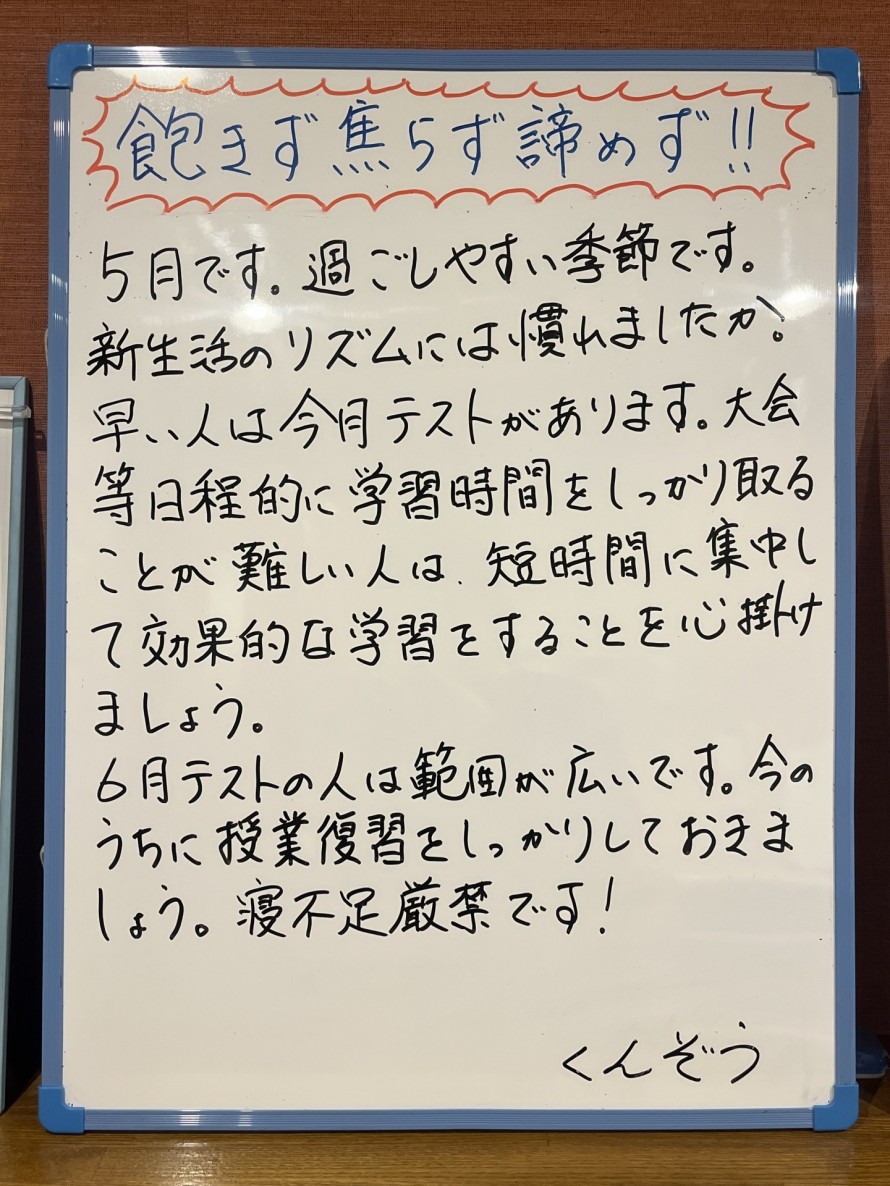 飽きず焦らず諦めず!!
5月です。過ごしやすい季節です。
新生活のリズムには慣れましたか?
早い人は今月テストがあります。大会
等日程的に学習時間をしっかり取る
ことが難しい人は、短時間に集中し
て効果的な学習をすることを心掛け
ましょう。
6月テストの人は範囲が広いです。今の
うちに授業復習をしっかりしておきま
しょう。寝不足厳禁です!
くんぞう